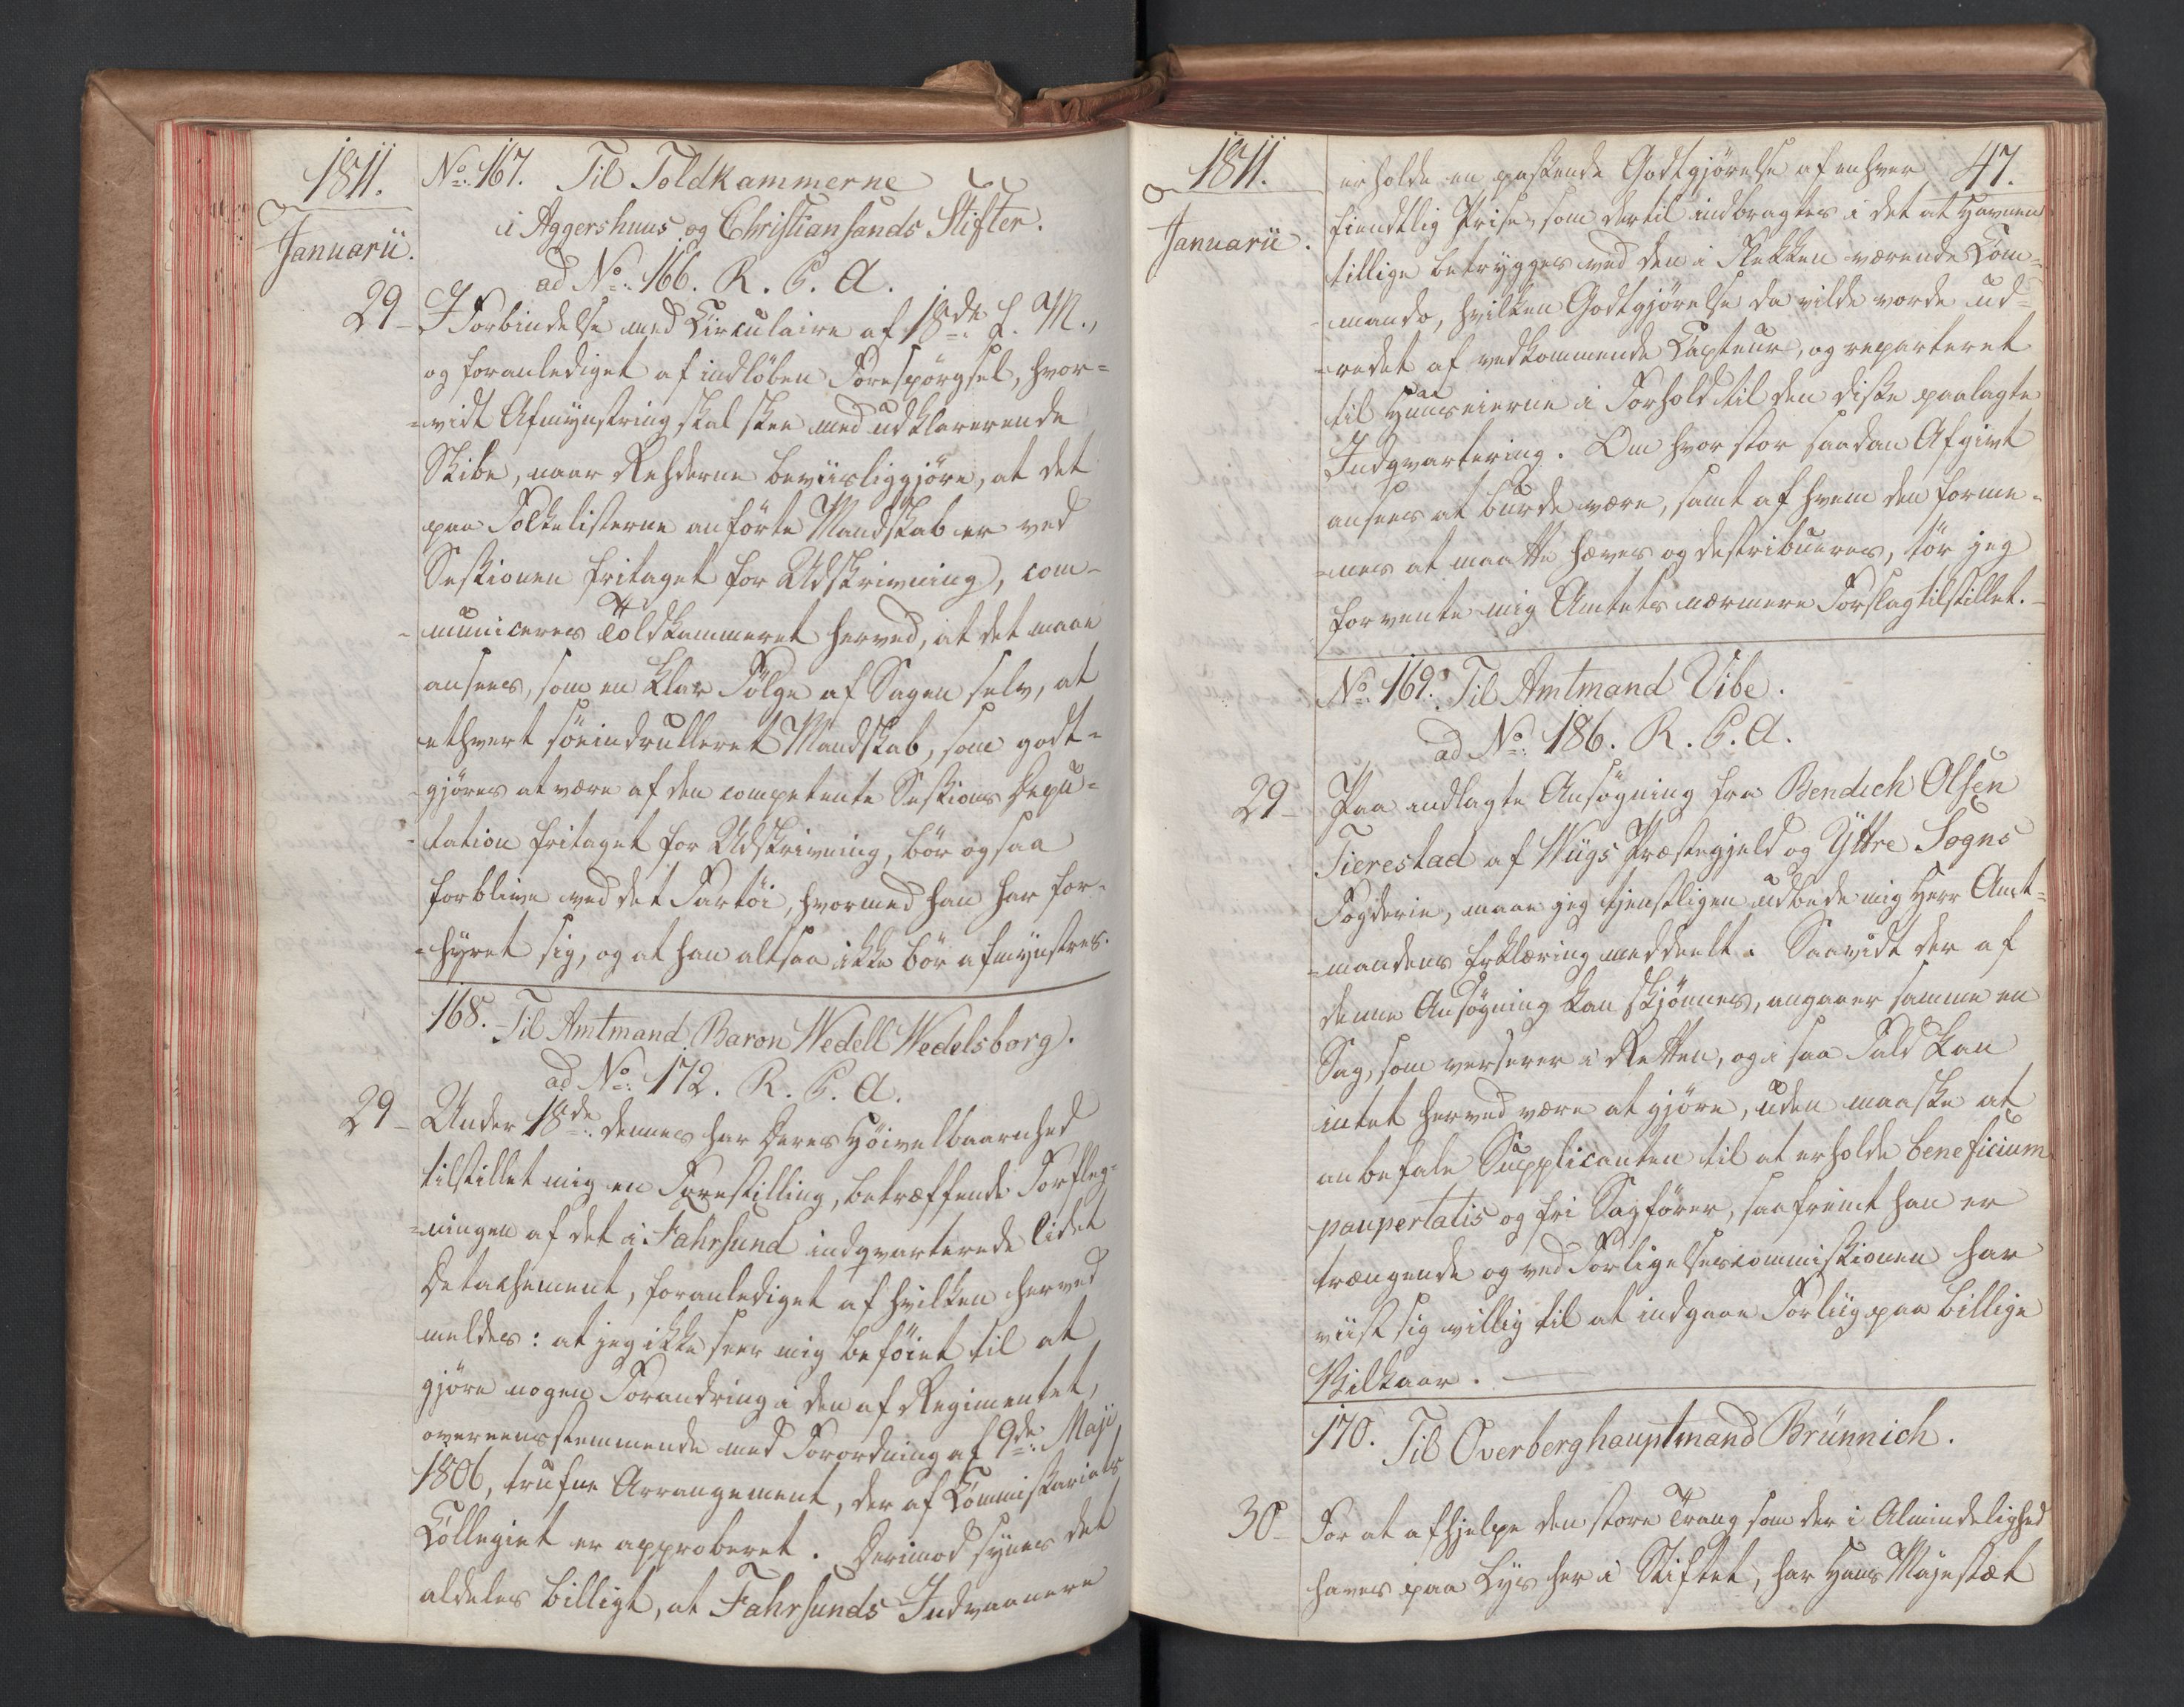 1811.
Januarii.
No. 167. Til Toldkammerne
i Aggershuus og Christiansands Stifter.
ad No. 166. R. P. A.
29 - I Forbindelse med Circulaire af 18de f. M.,
og foranlediget af indløben Forespørgsel, hvor=
=vidt Afmynstring skal skee med udklarerende
Skibe, naar Rehderne beviisliggjøre, at det
paa Folkelisterne anførte Mandskab er ved
Sessionen fritaget for Udskrivning, com=
=municeres Toldkammeret herved, at det maae
ansees, som en klar Følge af Sagen selv, at
ethvert søeindrulleret Mandskab, som godt=
=gjøres at være af den competente Sessions Depu=
=tation fritaget for Udskrivning, bør ogsaa
forblive ved det Fartøi, hvormed han har for=
=hyret sig, og at han altsaa ikke bør afmynstres.
168. Til Amtmand Baron Wedell Wedelsborg.
ad No. 172. R. P. A.
29 - Under 18de dennes har Deres Høivelbaarnhed
tilstillet mig en Forestilling, betræffende Forpleg=
=ningen af det i Fahrsund indqvarterede lidet
Detachement, foranlediget af hvilken herved
meldes: at jeg ikke seer mig beføiet til at
gjøre nogen Forandring i den af Regimentet,
overeensstemmende med Forordning af 9de Maji
1806, trufne Arrangement, der af Commissariats
Collegiet er approberet. Derimod synes det
aldeles billigt, at Fahrsunds Indvaanere
1811.
Januarii.
47.
erholde en passende Godtgjørelse af enhver
fiendtlig Prise, som dertil indbragtes i det at Havnen
tillige betrygges ved den i Rekken værende Com=
=mando, hvilken Godtgjørelse da vilde vorde ud=
=redet af vedkommende Capteur, og reparteret
til Huuseierne i Forhold til den disse paalagte
Indqvartering. Om hvor stor saadan Afgivt
ansees at burde være, samt af hvem den forme=
=nes at maatte hæves og destribueres, tør jeg
forvente mig Amtets nærmere Forslag tilstillet. -
No. 169. Til Amtmand Vibe.
ad No. 186. R. P. A.
29 - Paa indlagte Ansøgning fra Bendich Olsen
Tierestad af Wiigs Præstegjeld og Yttre Sogns
Fogderie, maae jeg tjenstligen udbede mig Herr Amt=
=mandens Erklæring meddeelt. Saavidt der af
denne Ansøgning kan skjønnes, angaaer samme en
Sag, som verserer i Retten, og i saa Fald kan
intet herved være at gjøre, uden maaske at
anbefale Supplicanten til at erholde beneficium
paupertatis og fri Sagfører, saafremt han er
trængende og ved Forligelsescommissionen har
viist sig villig til at indgaae Forliig paa billige
Vilkaar.
170. Til Overberghauptmand Brünnich.
30 - For at afhjelpe den store Trang som der i Almindelighed
haves paa Lys her i Stiftet, har Hans Majestæt